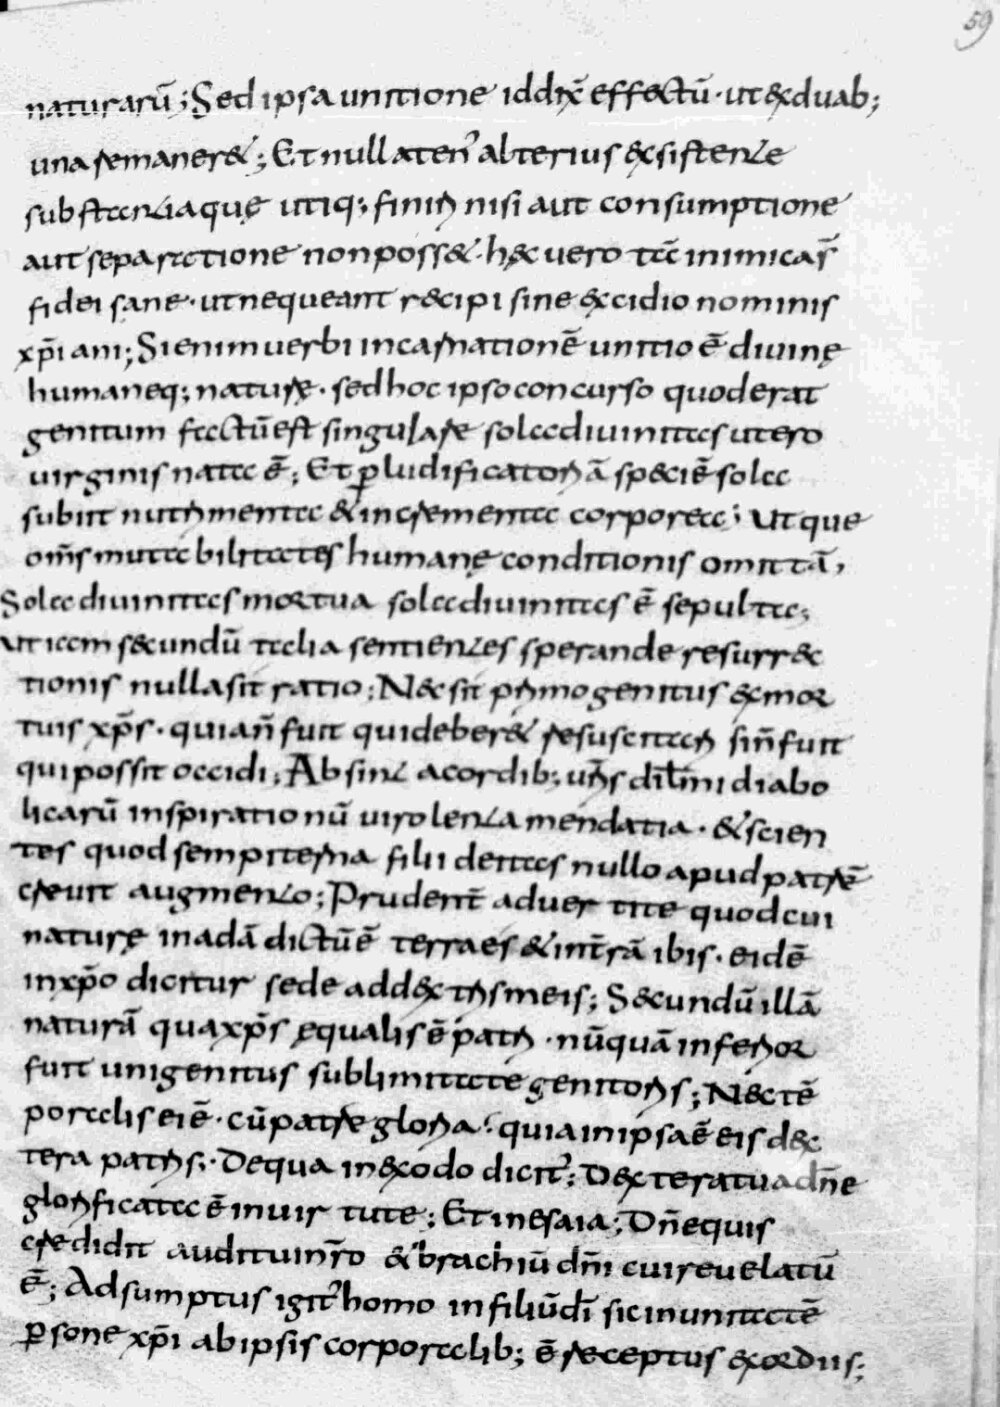 59
naturarū; Sed ipsa unitione id dix̄ effectū· ut ex duab;
una remaneret; Et nulla ten̄ alterius existente
substantia que utiq; finiri nisi aut consumptione
aut separatione non posset· hęc uero tā inimica s̄
fidei sane· ut nequeant recipi sine excidio nominis
xp̄iani; Si enim uerbi incarnationē unitio ē diuinę
humaneq; naturę· sed hoc ipso concurso quod erat
geminum factū est singulare sola diuinitas utero
uirginis nata ē; Et p̱ ludificatoriā speciē sola
subiit nutrimenta & incrementa corporea; Utque
om̄s mutabilitates humanę conditionis omittā,
Sola diuinitas mortua sola diuinitas ē sepulta;
ut iam secundū talia sentientes sperande resurrec
tionis nulla sit ratio; Nec sit primogenitus ex mor
tuis xp̄s· quia n̄ fuit qui deberet resuscitari si n̄ fuit
qui possit occidi; Absint a cordib; ur̄is dil̄mi diabo
licarū inspirationū uirolenta mendatia· & scien
tes quod sempiterna filii deitas nullo apud patrē
creuit augmento; Prudent̄ aduertite quod cui
naturę in adā dictū ē terra es & in t̄rā ibis· eidē
in xp̄o dicitur sede ad dextris meis; Secundū illā
naturā qua xp̄s ęqualis ē patri· nūquā inferior
fuit unigenitus sublimitate genitoris; Nec tē
poralis ei ē· cū patre gloria· quia in ipsa ē eis dex
tera patris;· De qua in exodo dicit̄; Dextera tua dn̄e
glorificata ē in uirtute; Et in esaia; Dn̄e quis
credidit auditui nr̄o & brachiū dn̄i cui reuelatū
ē; Adsumptus igit̄ homo in filiū dī sic in unitatē
p̱sone xp̄i ab ipsis corporalib; ē receptus exordiis;